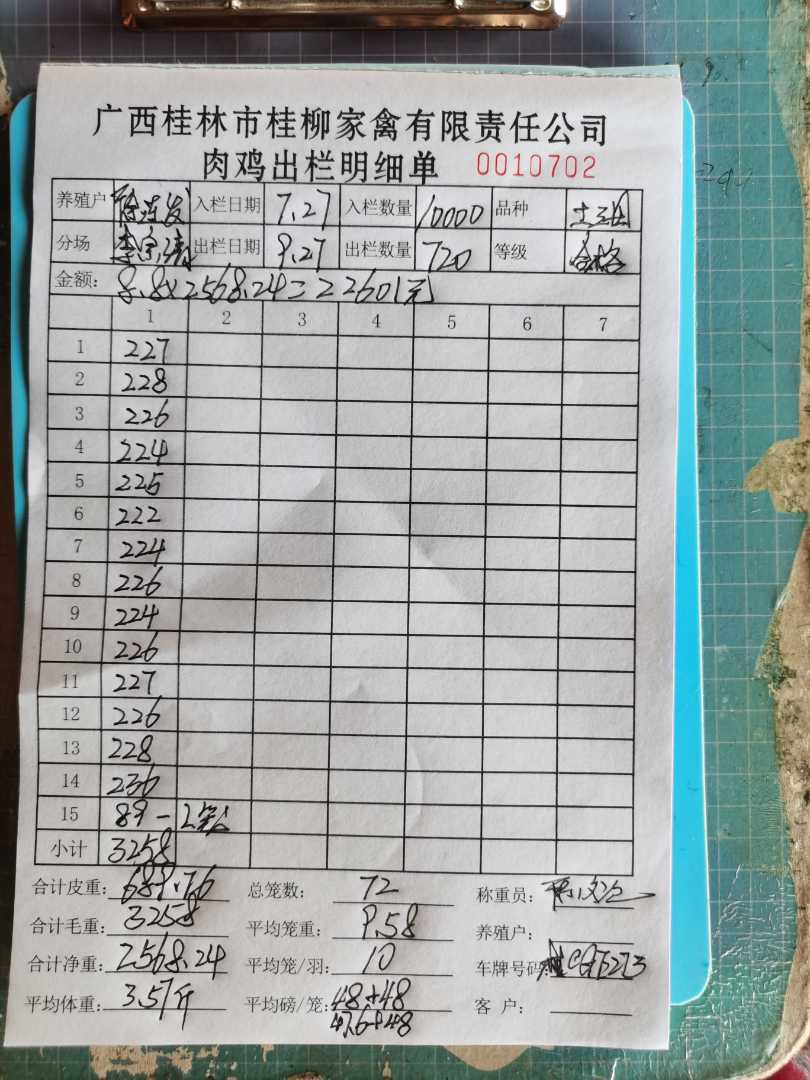 广西桂林市桂柳家禽有限责任公司
肉鸡出栏明细单 0010702
养殖户 入栏日期 7.27 入栏数量 10000 品种
分场 出栏日期 9.27 出栏数量 720 等级 合格
金额: 8.8×2568.24=22601元
1 2 3 4 5 6 7
1 227
2 228
3 226
4 224
5 225
6 222
7 224
8 226
9 224
10 226
11 227
12 226
13 228
14 236
15 89-2
小计 3258
合计皮重: 689.76 总笼数: 72 称重员:
合计毛重: 3258 平均笼重: 9.58 养殖户:
合计净重: 2568.24 平均笼/羽: 10 车牌号码:
平均体重: 3.57斤 平均磅/笼: 48+48 客户:
47.6+48